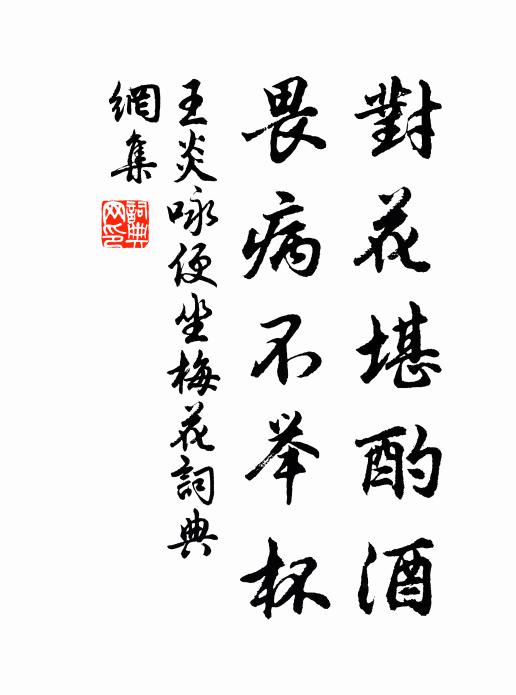 對花堪酌酒
畏病不举杯
王炎咏便坐梅花詞典
網集
詞典
网印